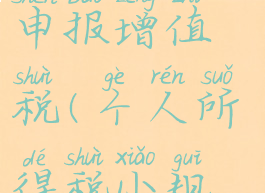 shēn bào zēng zhí
申报增值
shuì gè rén suǒ
税(个人所
dé shuì xiǎo guī
得税小规